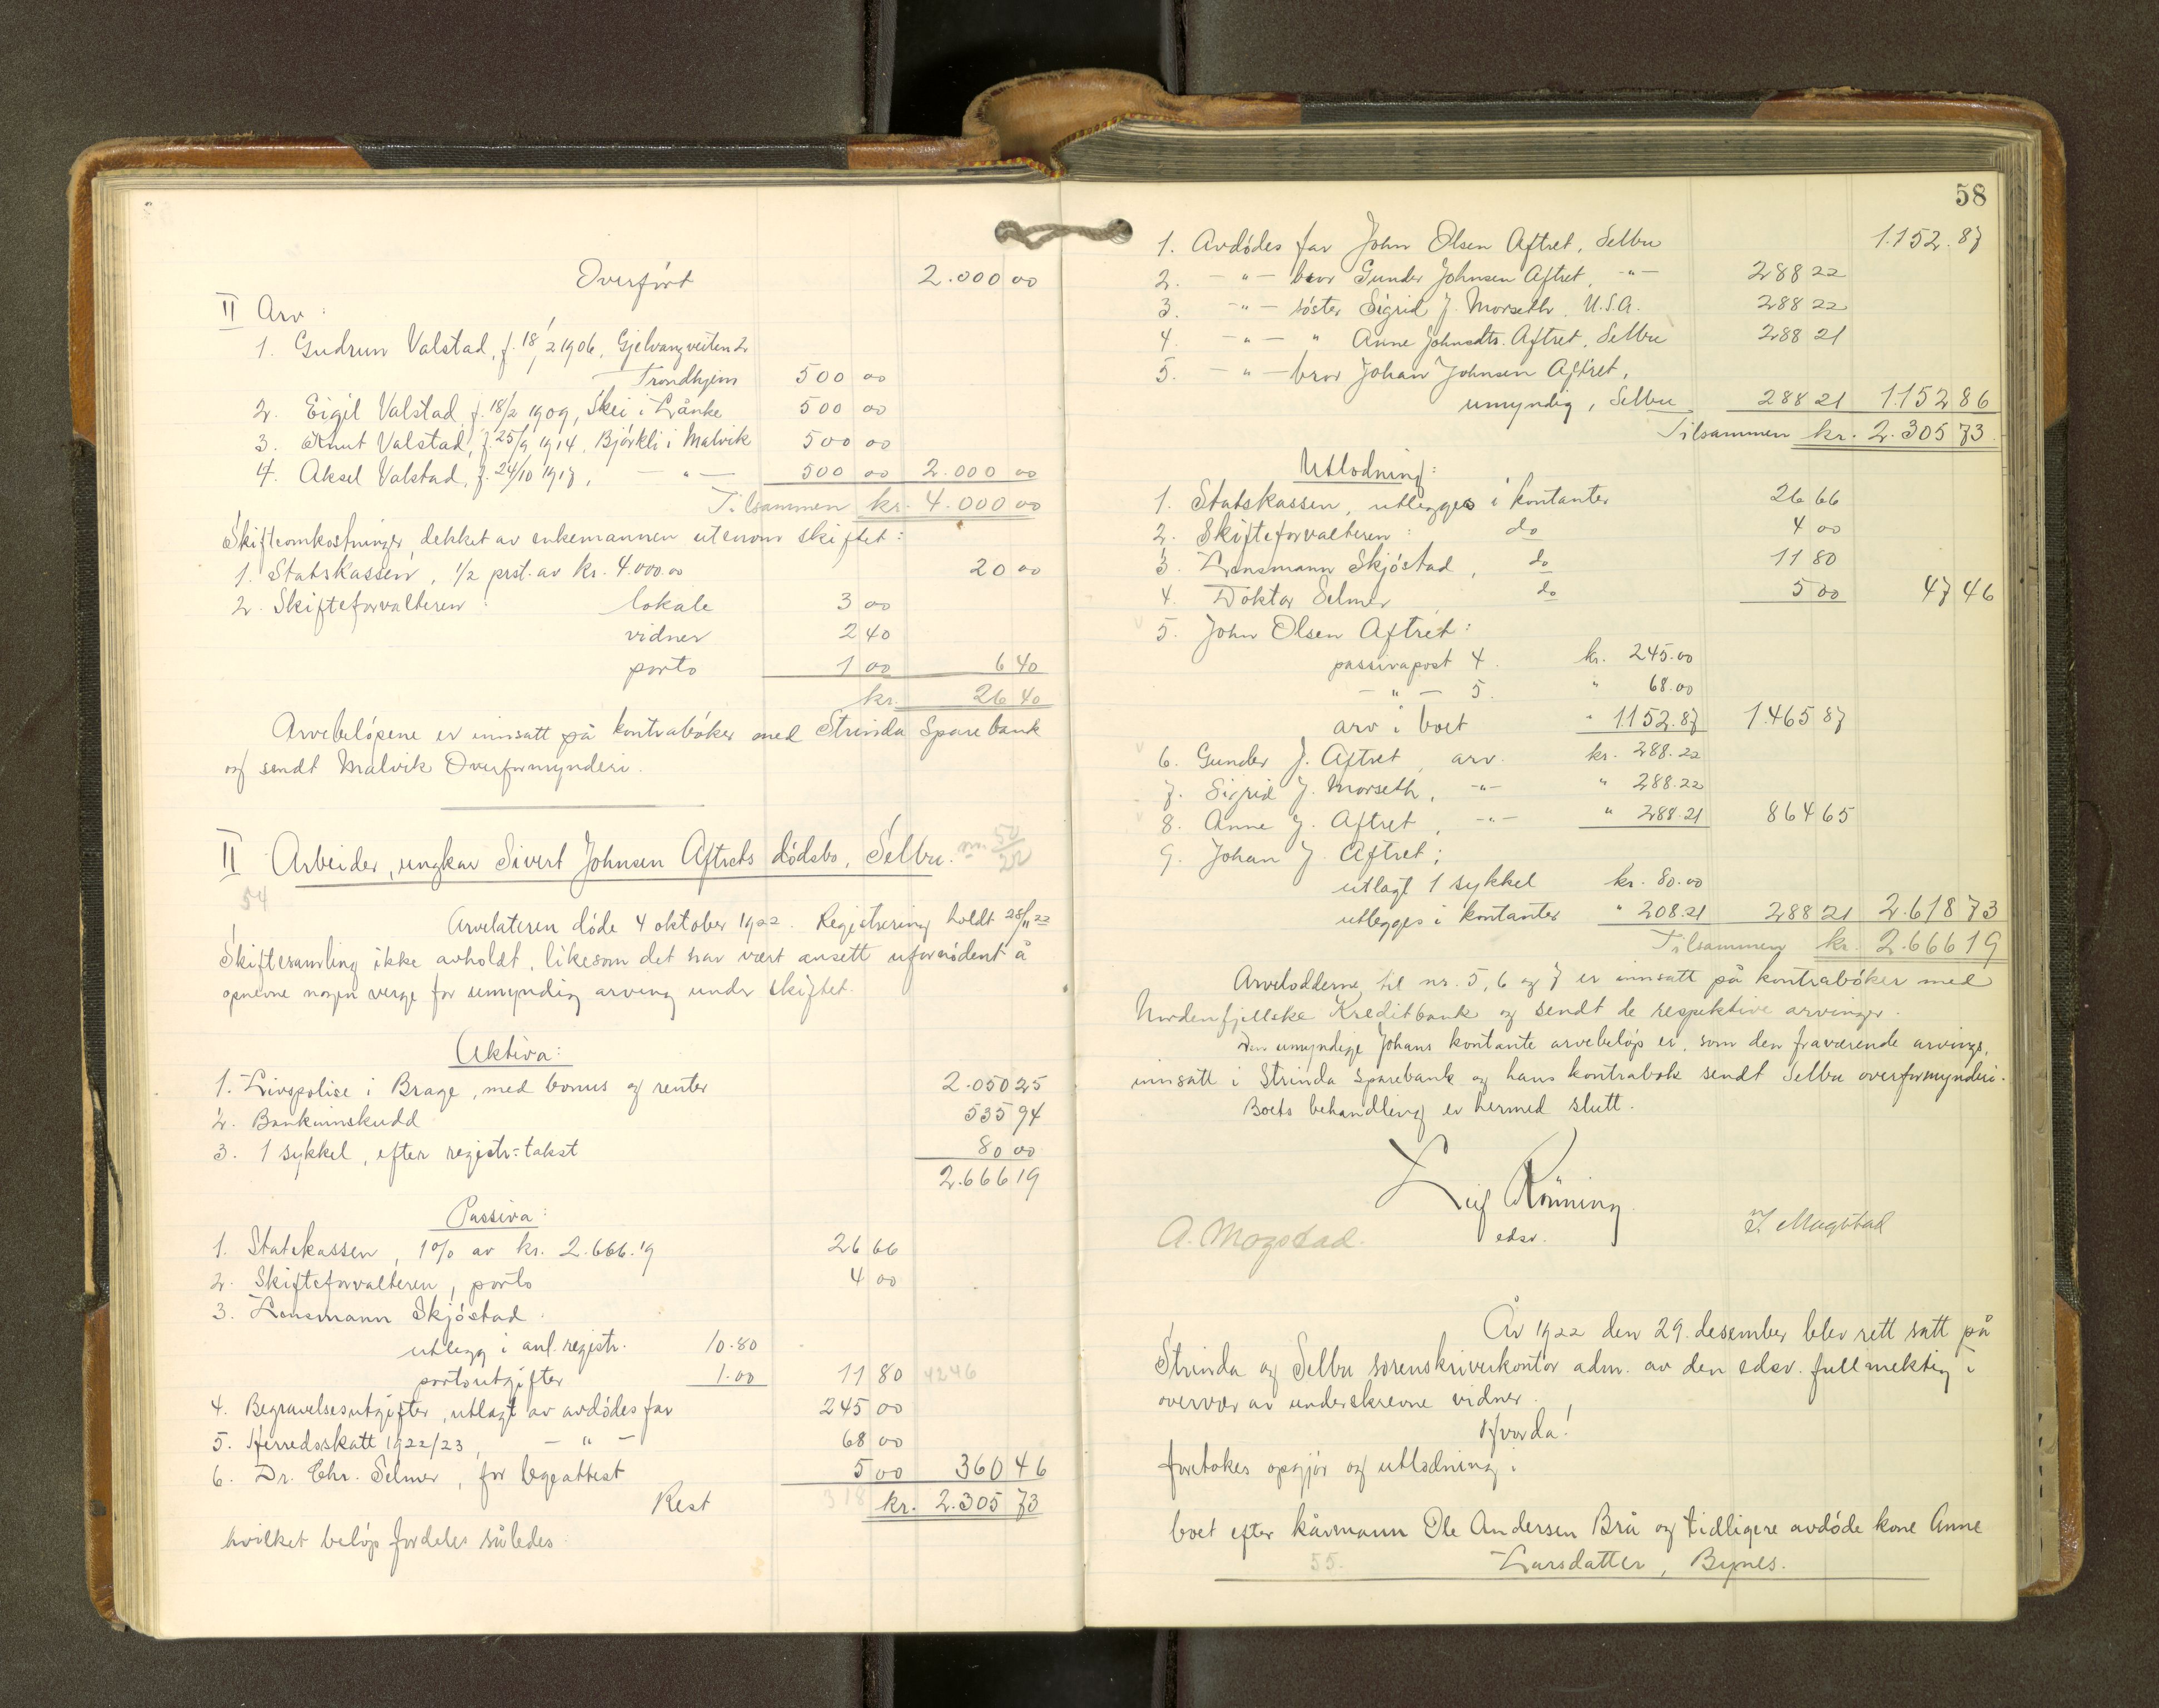 Overført 2.000 00
II Arv:
1. Gudrun Valstad, f. 18/2 1906, Gjelvangveiten 2
Trondhjem 500 00
2. Eigil Valstad, f. 18/2 1909, Skei i Lånke 500 00
3. Knut Valstad, f. 25/9 1914, Bjørkli i Malvik 500 00
4. Aksel Valstad, f. 24/10 1917, — " — 500 00 2.000 00
Tilsammen kr. 4.000 00
Skifteomkostninger, dekket av enkemannen utenom skiftet:
1. Statskassen, 1/2 prst. av kr. 4.000.00 20 00
2. Skifteforvalteren: lokale 3 00
vidner 2 40
porto 1 00 6 40
kr. 26 40
Arvebeløpene er innsatt på kontrabøker med Strinda Sparebank
og sendt Malvik Overformynderi.
II Arbeider, ungkar Sivert Johnsen Aftrets dødsbo, Selbu. nr. 50/22
54
Arvelateren døde 4 oktober 1922. Registrering holdt 28/11 22
Skiftesamling ikke avholdt, likesom det har vært ansett ufornødent å
opnevne nogen verge for umyndig arving under skiftet.
Aktiva:
1. Livspolise i Brage, med bonus og renter 2.050 25
2. Bankinnskudd 535 94
3. 1 sykkel, efter registr.-takst 80 00
2.666 19
Passiva:
1. Statskassen, 1% av kr. 2.666.19 26 66
2. Skifteforvalteren, porto 4 00
3. Lensmann Skjøstad
utlegg i anl. registr. 10.80
portoutgifter 1.00 11 80 42 46
4. Begravelsesutgifter, utlagt av avdødes far 245 00
5. Herredsskatt 1922/23, — " — 68 00
6. Dr. Chr. Selmer, for legeattest 5 00 360 46
Rest 318 kr. 2.305 73
hvilket beløp fordeles således:
58
1. Avdødes far John Olsen Aftret, Selbu 1.152.87
2. — " — bror Gunder Johnsen Aftret, — " — 288 22
3. — " — søster Sigrid J. Morseth, U.S.A. 288 22
4. — " — " Anne Johnsdtr. Aftret, Selbu 288 21
5. — " — bror Johan Johnsen Aftret,
umyndig, Selbu 288 21 1.152 86
Tilsammen kr. 2.305 73
Utlodning:
1. Statskassen, utlegges i kontanter 26 66
2. Skifteforvalteren: do 4 00
3. Lensmann Skjøstad, do 11 80
4. Doktor Selmer do 5 00 47 46
5. John Olsen Aftret:
passivapost 4. kr. 245.00
— " — 5. " 68.00
arv i boet " 1152.87 1.465 87
6. Gunder J. Aftret, arv. kr. 288.22
7. Sigrid J. Morseth, — " — " 288.22
8. Anne J. Aftret, — " — " 288.21 864 65
9. Johan J. Aftret;
utlagt 1 sykkel kr. 80.00
utlegges i kontanter " 208.21 288 21 2.618 73
Tilsammen kr. 2.666 19
Arvelodderne til nr. 5, 6 og 7 er innsatt på kontrabøker med
Nordenfjellske Kreditbank og sendt de respektive arvinger.
Den umyndige Johans kontante arvebeløp er, som den fraværende arvings,
innsatt i Strinda Sparebank og hans kontrabok sendt Selbu overformynderi.
Boets behandling er hermed slutt.
Leif Rönning
edsv.
A. Mogstad. J. Mogstad
År 1922 den 29. desember blev rett satt på
Strinda og Selbu sorenskriverkontor adm. av den edsv. fullmektig i
overvær av underskrevne vidner.
Hvorda!
foretokes opgjør og utlodning i
boet efter kårmann Ole Andersen Brå og tidligere avdøde kone Anne
55. Larsdatter, Bynes.